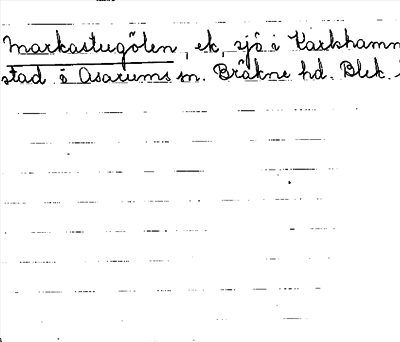 Markastugölen, ek, sjö i Karlshamn
stad i Asarums sn. Bräkne hd. Blek.